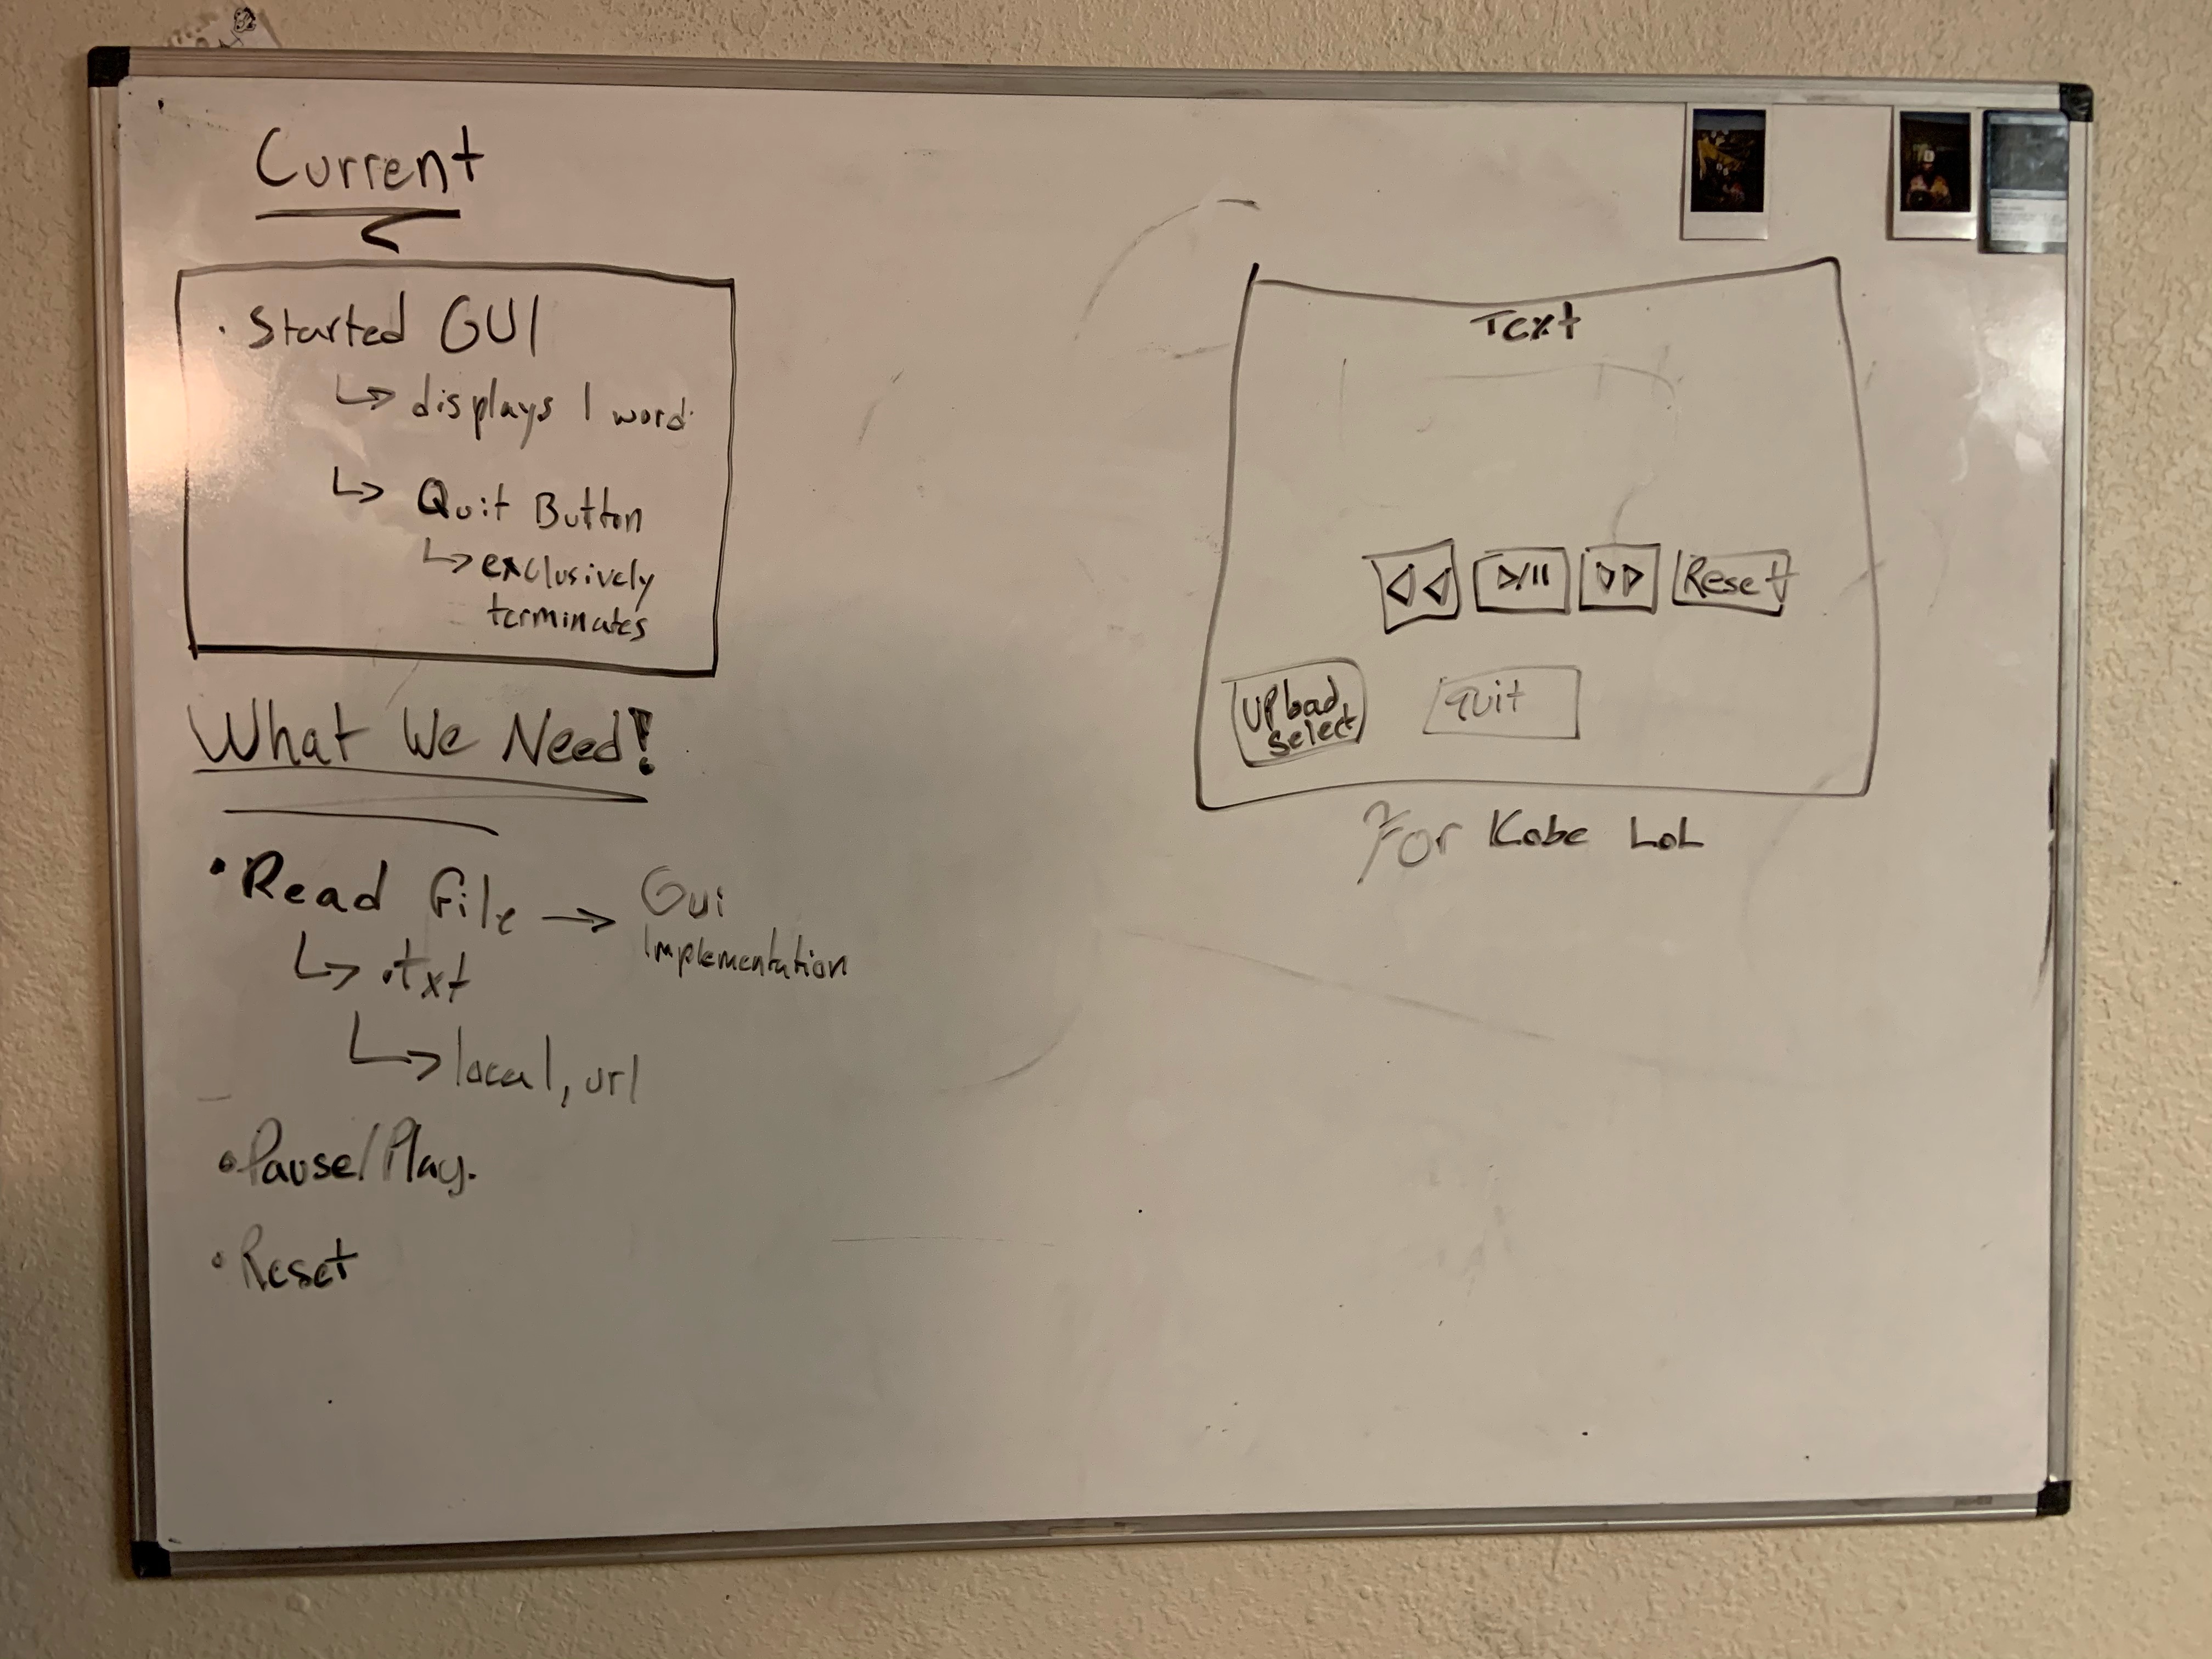 Current
• Started GUI
↳ displays 1 word
↳ Quit Button
↳ exclusively
terminates
What We Need!
• Read File → Gui
Implementation
↳ .txt
↳ local, url
• Pause/Play.
• Reset
Text
◁◁ ▷/II ▷▷ Reset
Upload
Select
quit
For Kobe LoL